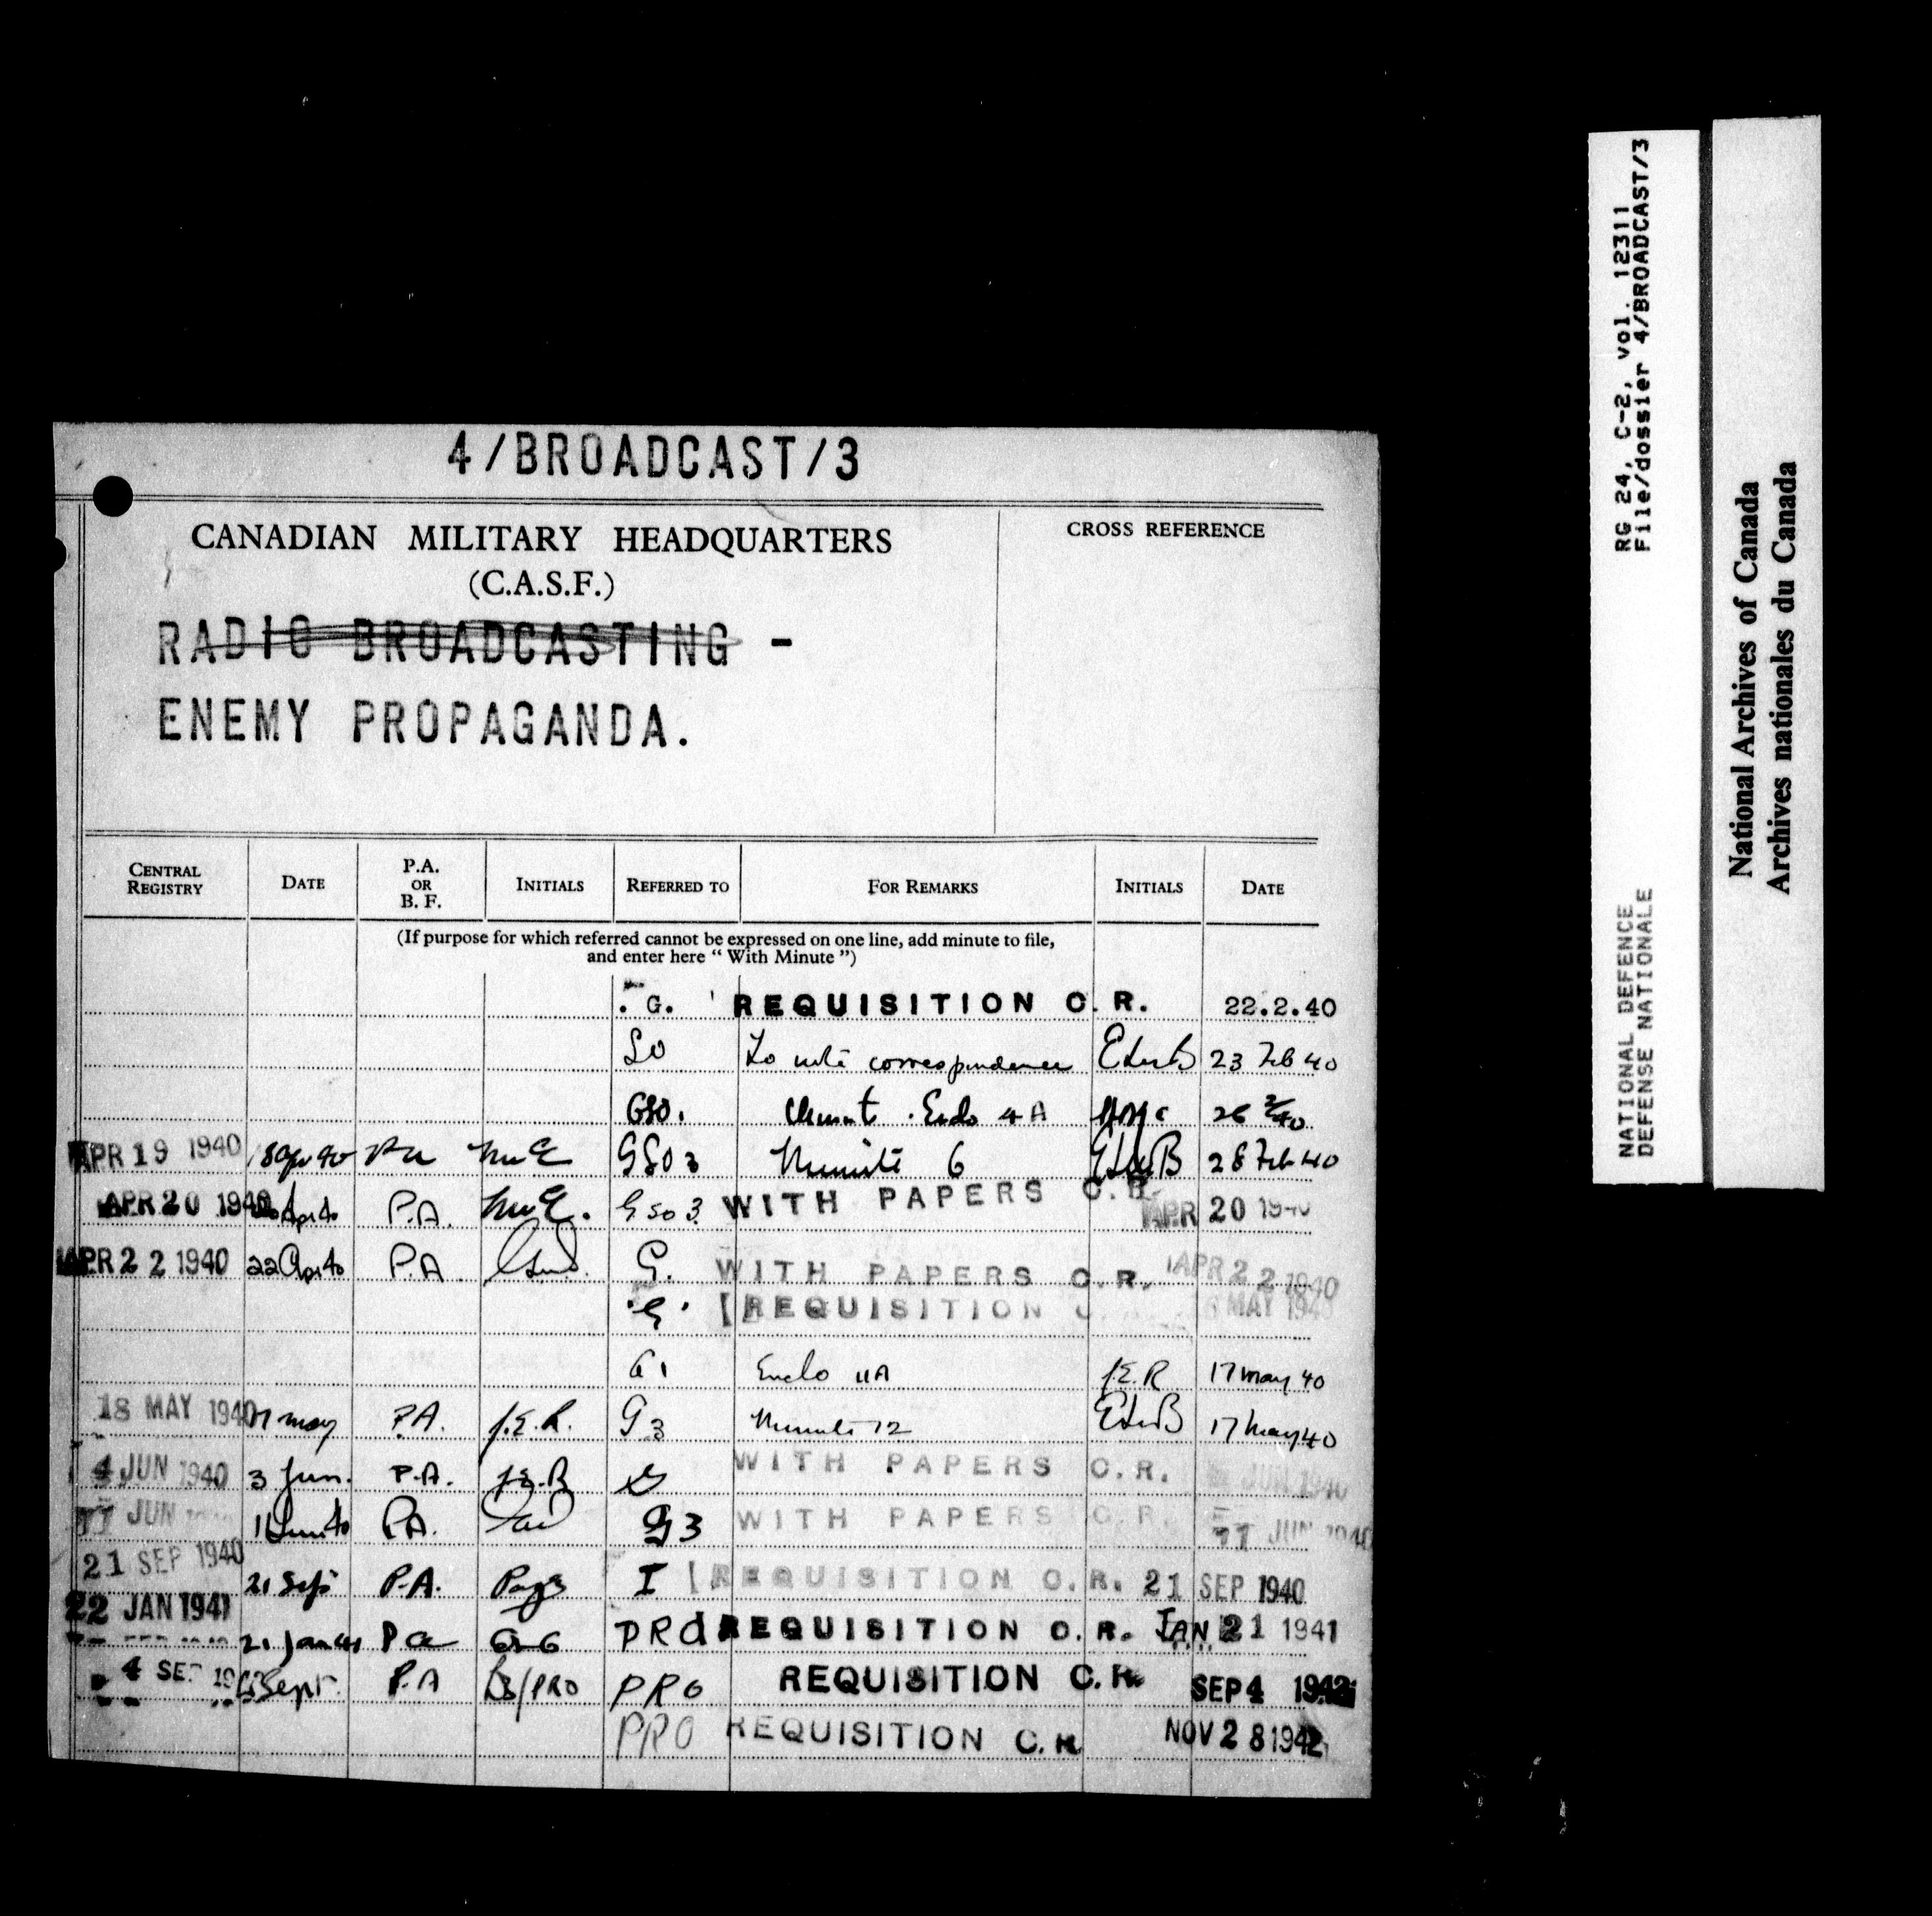 4/BROADCAST/3
CANADIAN MILITARY HEADQUARTERS
(C.A.S.F.)
CROSS REFERENCE
RADIO BROADCASTING -
ENEMY PROPAGANDA.
CENTRAL REGISTRY DATE P.A. OR B. F. INITIALS REFERRED TO FOR REMARKS INITIALS DATE
(If purpose for which referred cannot be expressed on one line, add minute to file,
and enter here " With Minute ")
. G. REQUISITION C.R. 22.2.40
correspondence 23 Feb 40
GSO. Enclo 4A
APR 19 1940 PA GSO 3 Minute 6 28 Feb 40
APR 20 1940 P.A. GSO 3. WITH PAPERS C.R. APR 20 1940
APR 22 1940 22 Apr 40 P.A. G. WITH PAPERS C.R. APR 22 1940
G REQUISITION MAY 1940
G1 Enclo 11A J.E.R 17 May 40
18 MAY 1940 17 may P.A. J.E.R. G3 Minute 12 17 May 40
4 JUN 1940 3 Jun. P.A. J.E.R G WITH PAPERS C.R. JUN 1940
11 JUN P.A. G3 WITH PAPERS C.R. 11 JUN 1940
21 SEP 1940 21 Sept P.A. I REQUISITION C.R. 21 SEP 1940
22 JAN 1941 21 Jan 41 Pa PRO REQUISITION C.R. JAN 21 1941
4 SEP 19 Sept. P.A PRO REQUISITION C.R. SEP 4 1942
PRO REQUISITION C.R. NOV 28 1942
RG 24, C-2, vol. 12311
File/dossier 4/BROADCAST/3
NATIONAL DEFENCE
DEFENSE NATIONALE
National Archives of Canada
Archives nationales du Canada